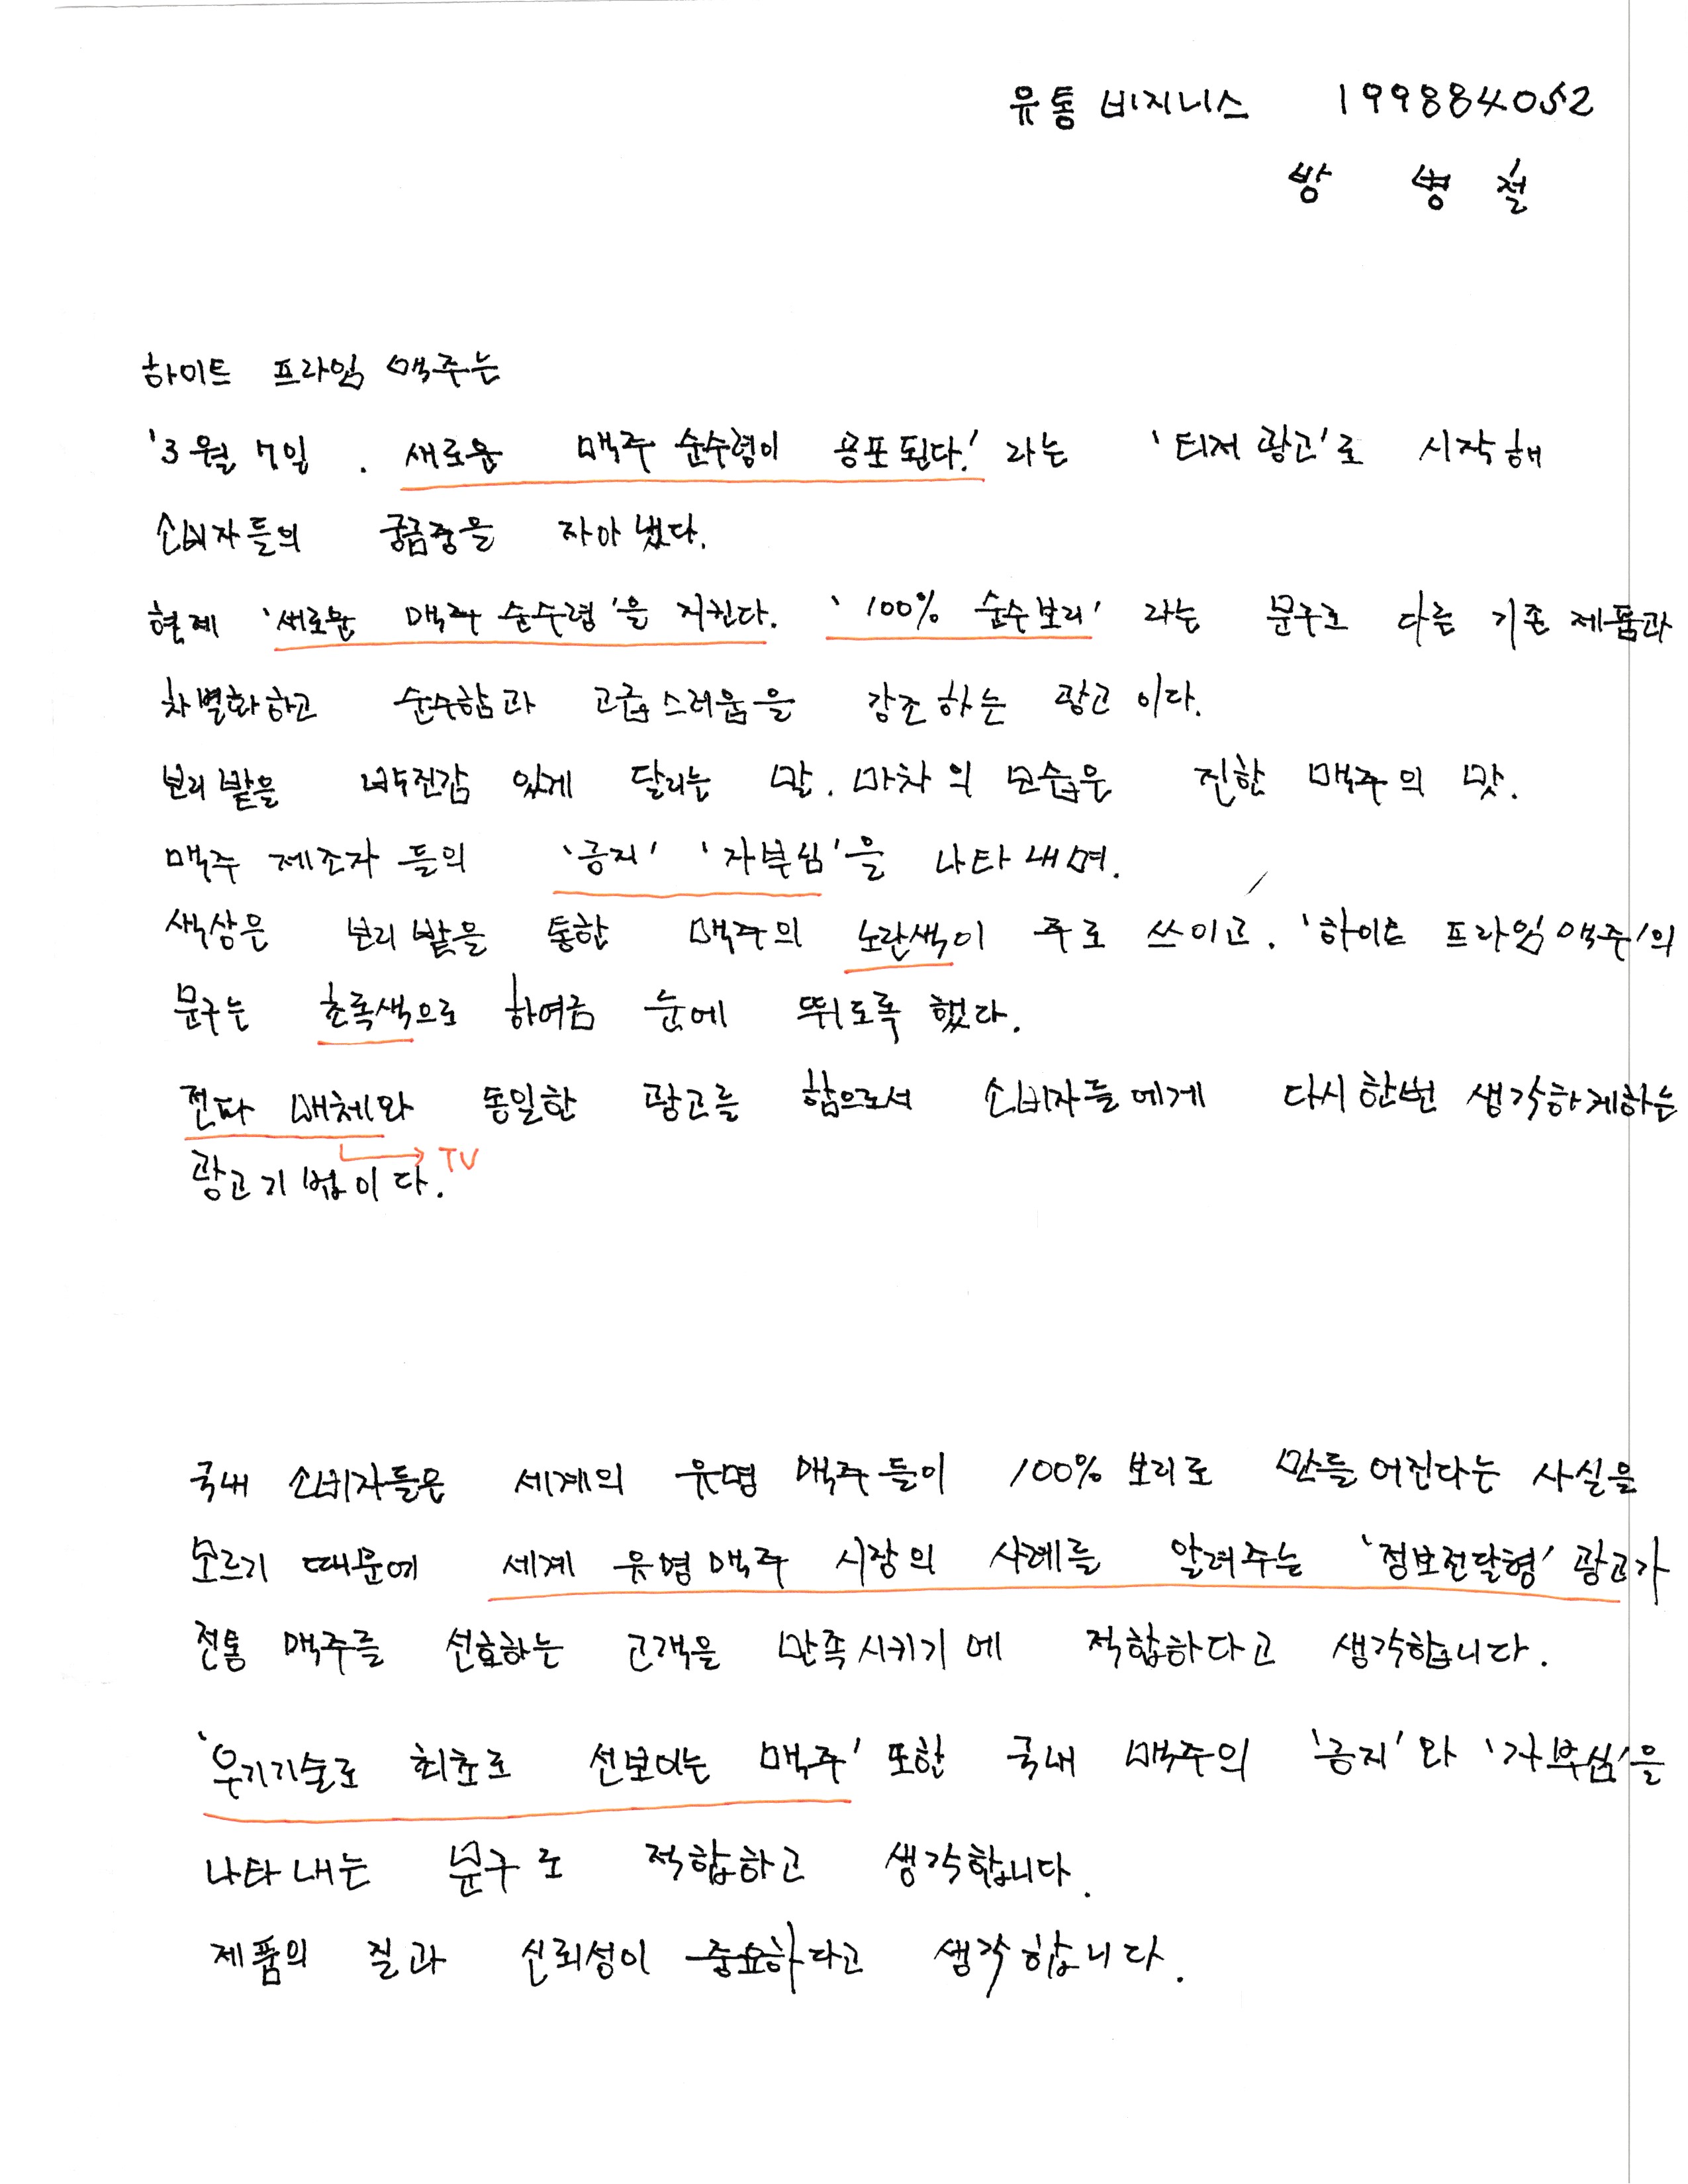 유통 비지니스 199884052
방 병 철
하이트 프라임 맥주는
'3월 7일. 새로운 맥주 순수령이 공포된다.' 라는 '티저 광고'로 시작해
소비자들의 궁금중을 자아냈다.
현재 '새로운 맥주 순수령'을 지킨다. '100% 순수보리' 라는 문구로 다른 기존 제품과
차별화하고 순수함과 고급스러움을 강조하는 광고이다.
보리밭을 박진감 있게 달리는 말. 마차의 모습은 진한 맥주의 맛.
맥주 제조자 들의 '긍지' '자부심'을 나타내며.
색상은 보리밭을 통한 맥주의 노란색이 주로 쓰이고. '하이트 프라임 맥주'의
문구는 초록색으로 하여금 눈에 뛰도록 했다.
전파 매체와 동일한 광고를 함으로서 소비자들에게 다시한번 생각하게하는
→ TV
광고기법이다.
국내 소비자들은 세계의 유명 맥주들이 100% 보리로 만들어진다는 사실을
모르기 때문에 세계 유명맥주 시장의 사례를 알려주는 '정보전달형' 광고가
전통 맥주를 선호하는 고객을 만족시키기에 적합하다고 생각합니다.
'우리기술로 최초로 선보이는 맥주' 또한 국내 맥주의 '긍지'와 '자부심'을
나타내는 문구로 적합하고 생각합니다.
제품의 질과 신뢰성이 중요하다고 생각합니다.